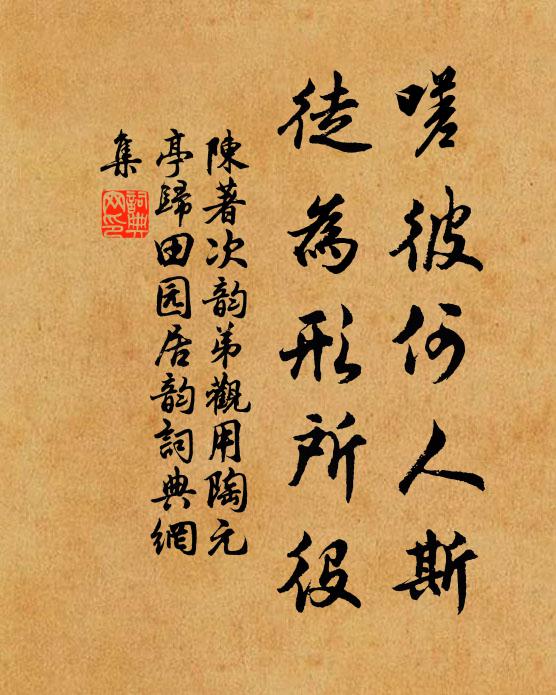 嗟彼何人斯
徒為形所役
陳著次韵弟觀用陶元
亭歸田园居韵詞典網
集
詞典
网印